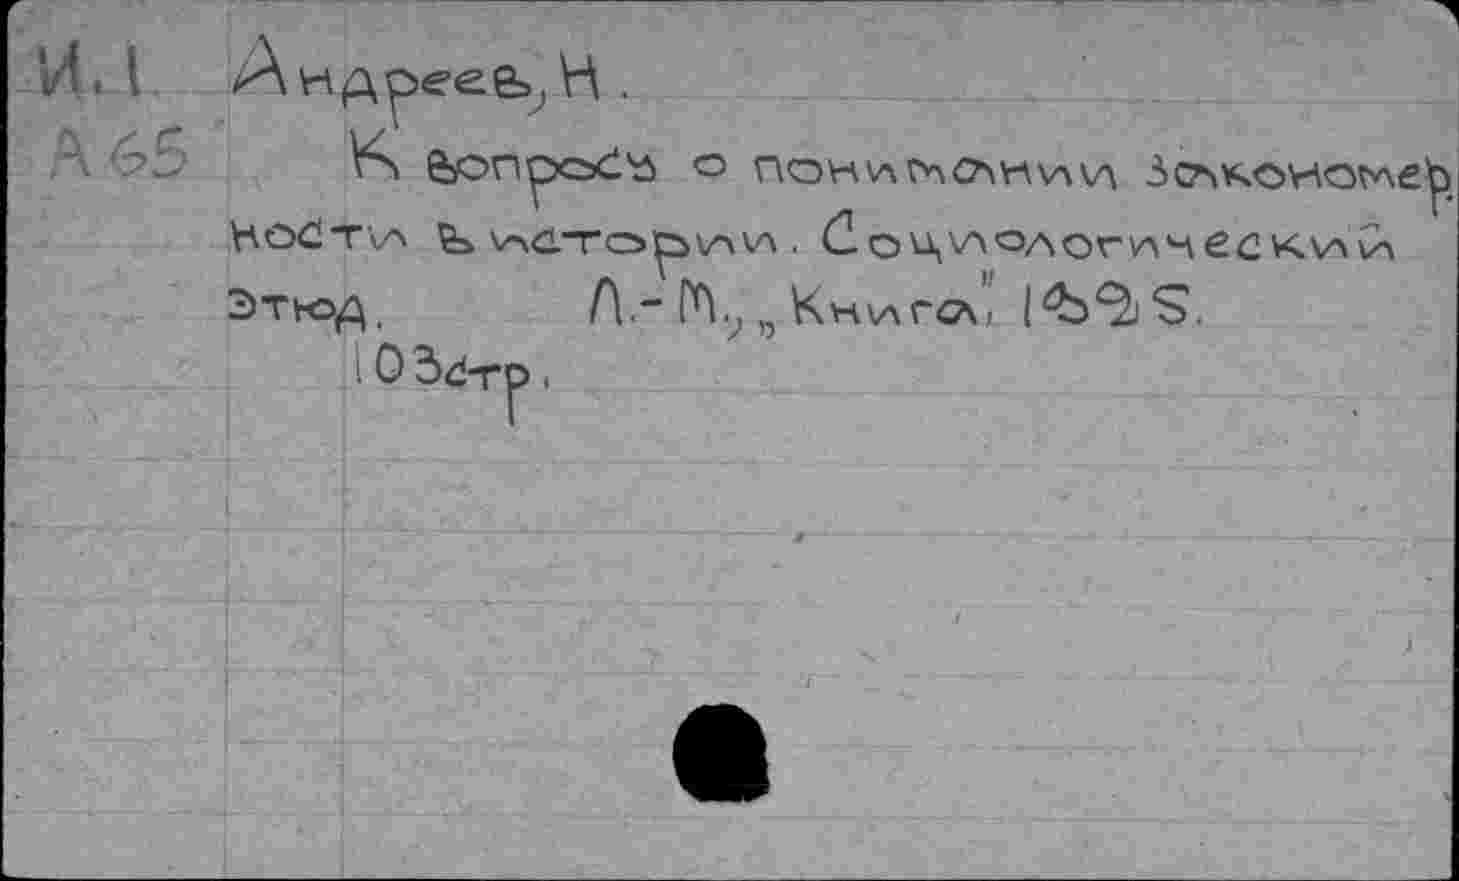 И.1 Андреев, Н.
А65 К вопросу о понимании закономер
ности в истории. Социологический
этюд. Л.-М., „Книга", 1925.
103 стр.